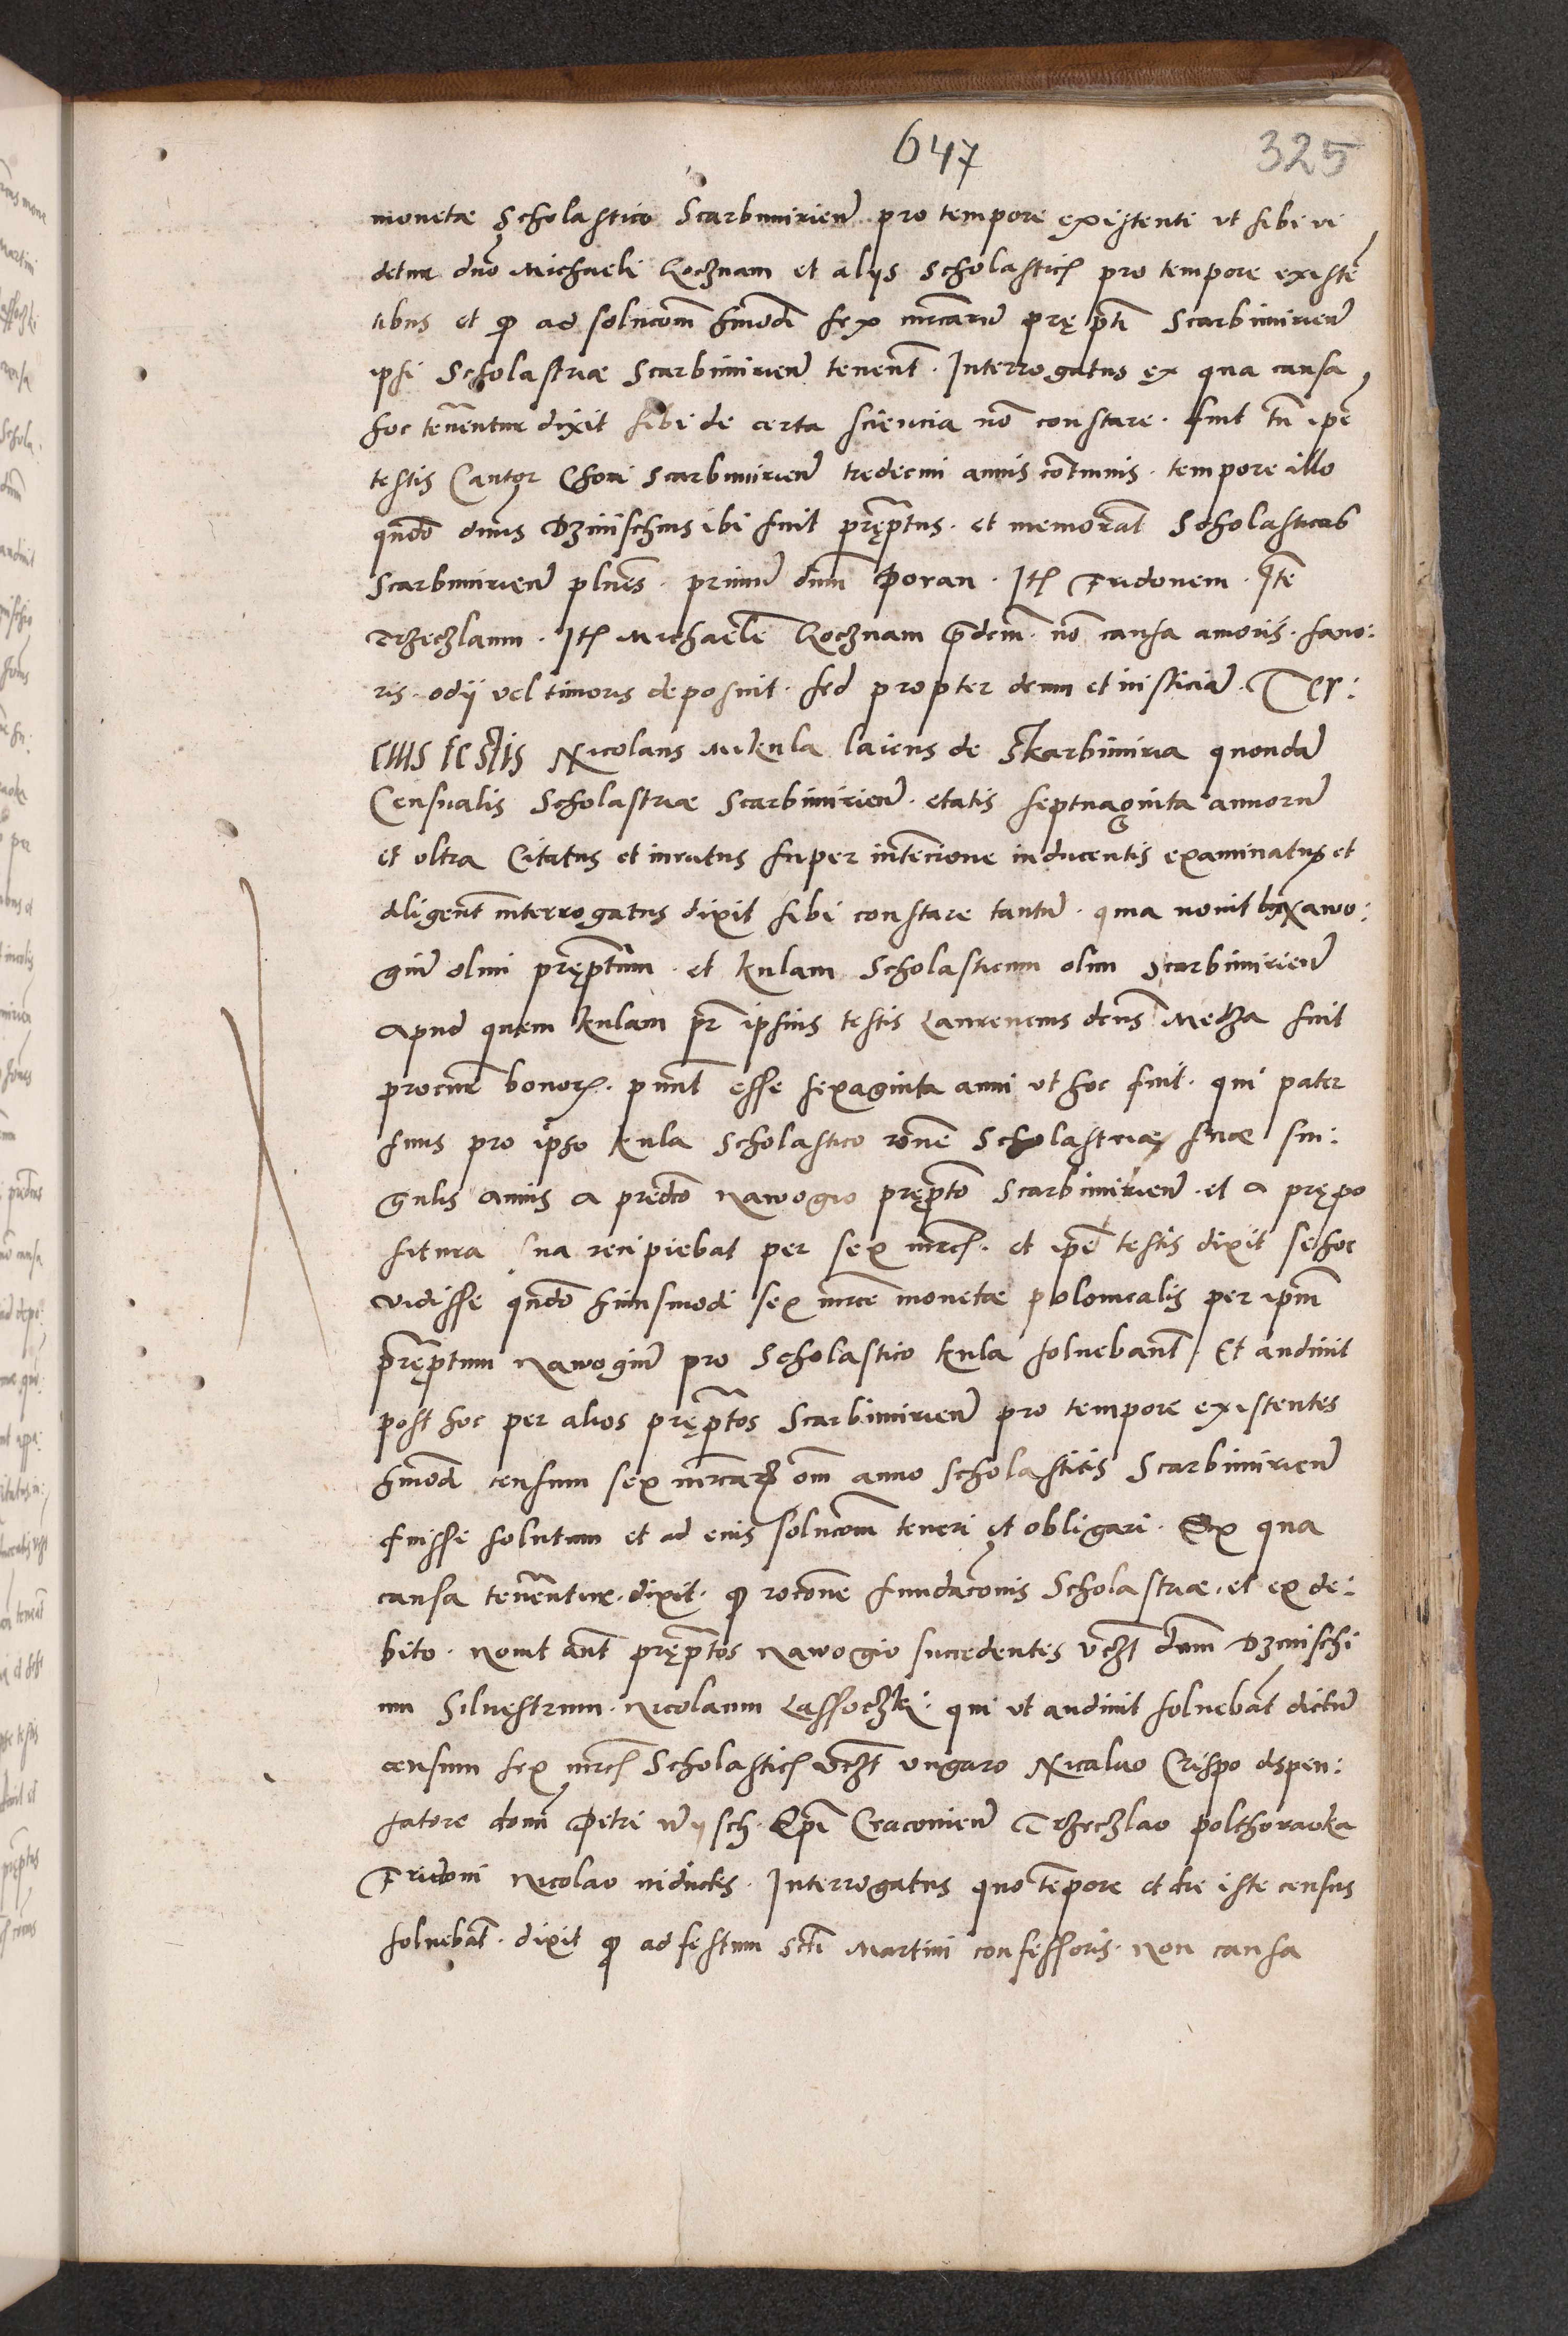 647
325
monetæ Scholastico Scarbimirień pro tempore existenti ut sibi vi
detur dño Michaeli Rocznam et aliis scholasticꝭ pro tempore existē
tibus et ꝙ ad solucom hmodi sex mrcarū pręptī Scarbimirień
ipsi Scholastriæ Scarbimirień tenent̄. Interrogatus ex qua causa
hoc teneantur dixit sibi de certa sciencia nō constare. fuit tn̄ ipē
testis Cantor Chori Scarbimirień tredecim annis cōtinuis. tempore illo
qn̄do dnūs Dzinischius ibi fuit pręptus. et memorat̄ Scholasticos
Scarbimirień plures. primū dnm̄ Poran. Itꝭ Tridonem. Itē
Trzeczlaum. Itꝭ Michaelē Rocznam p̄dcm̄. nō causa amoris. favo:
ris. odii vel timoris deposuit. sed propter deum et iusticiā. Ter:
cius testis Nicolaus Mikula laicus de Skarbimiria quondā
Censualis Scholastriæ Scarbimirień. etatis septuaginta annorū
et ultra Citatus et iuratus super intencione inducentis examinatus et
diligent̄ interrogatus dixit sibi constare tantū. quia novit Nawo:
giū olim pręptūm. et Kulam Scholasticum olim Scarbimirień
Apud quem Kulam pr̄ ipsius testis Laurencius dcus Medza fuit
procur̄ bonorꝭ. pnt̄ esse sexaginta anni ut hoc fuit. qui pater
suus pro ipso Kula Scholastico rōne Scholastriæ suæ sin:
gulis annis a predc̄o Nawogio pręptō Scarbimirień. et a prępo
situra sua recipiebat per sex mrcꝭ. et ipē testis dixit se hoc
vidisse qn̄do huiusmodi sex mrcē monetæ polonicalis per ipm̄
pręptum Nawogiū pro Scholastico Kula solvebant̄. Et audivit
post hoc per alios pręptos Scarbimirień pro tempore existentes
hmodi censum sex mrcarꝝ om̄ anno scholasticis Scarbimirień
fuisse solutum et ad eius solucom̄ teneri et obligari. Ex qua
causa teneantur. dixit. ꝙ rocōne fundacōnis Scholastriæ. et ex de:
bito. Novit aūt pręptos Nawogio succedentes vcꝫt dnm̄ Dzinischi
um Silvestrum. Nicolaum Lassoczki: qui ut audivit solvebāt dictū
censum sex mrcꝭ Scholasticꝭ vcꝫt ungaro Nicolao Crispo dispen:
satore domi Petri Wysch. Ep̄i Cracovień Trzeczlao polthoracka
Tridoni Nicolao Interrogatus quo tēpore et die iste census
solvebat̄. dixit ꝙ ad festum scti Martini confessoris. Non causa